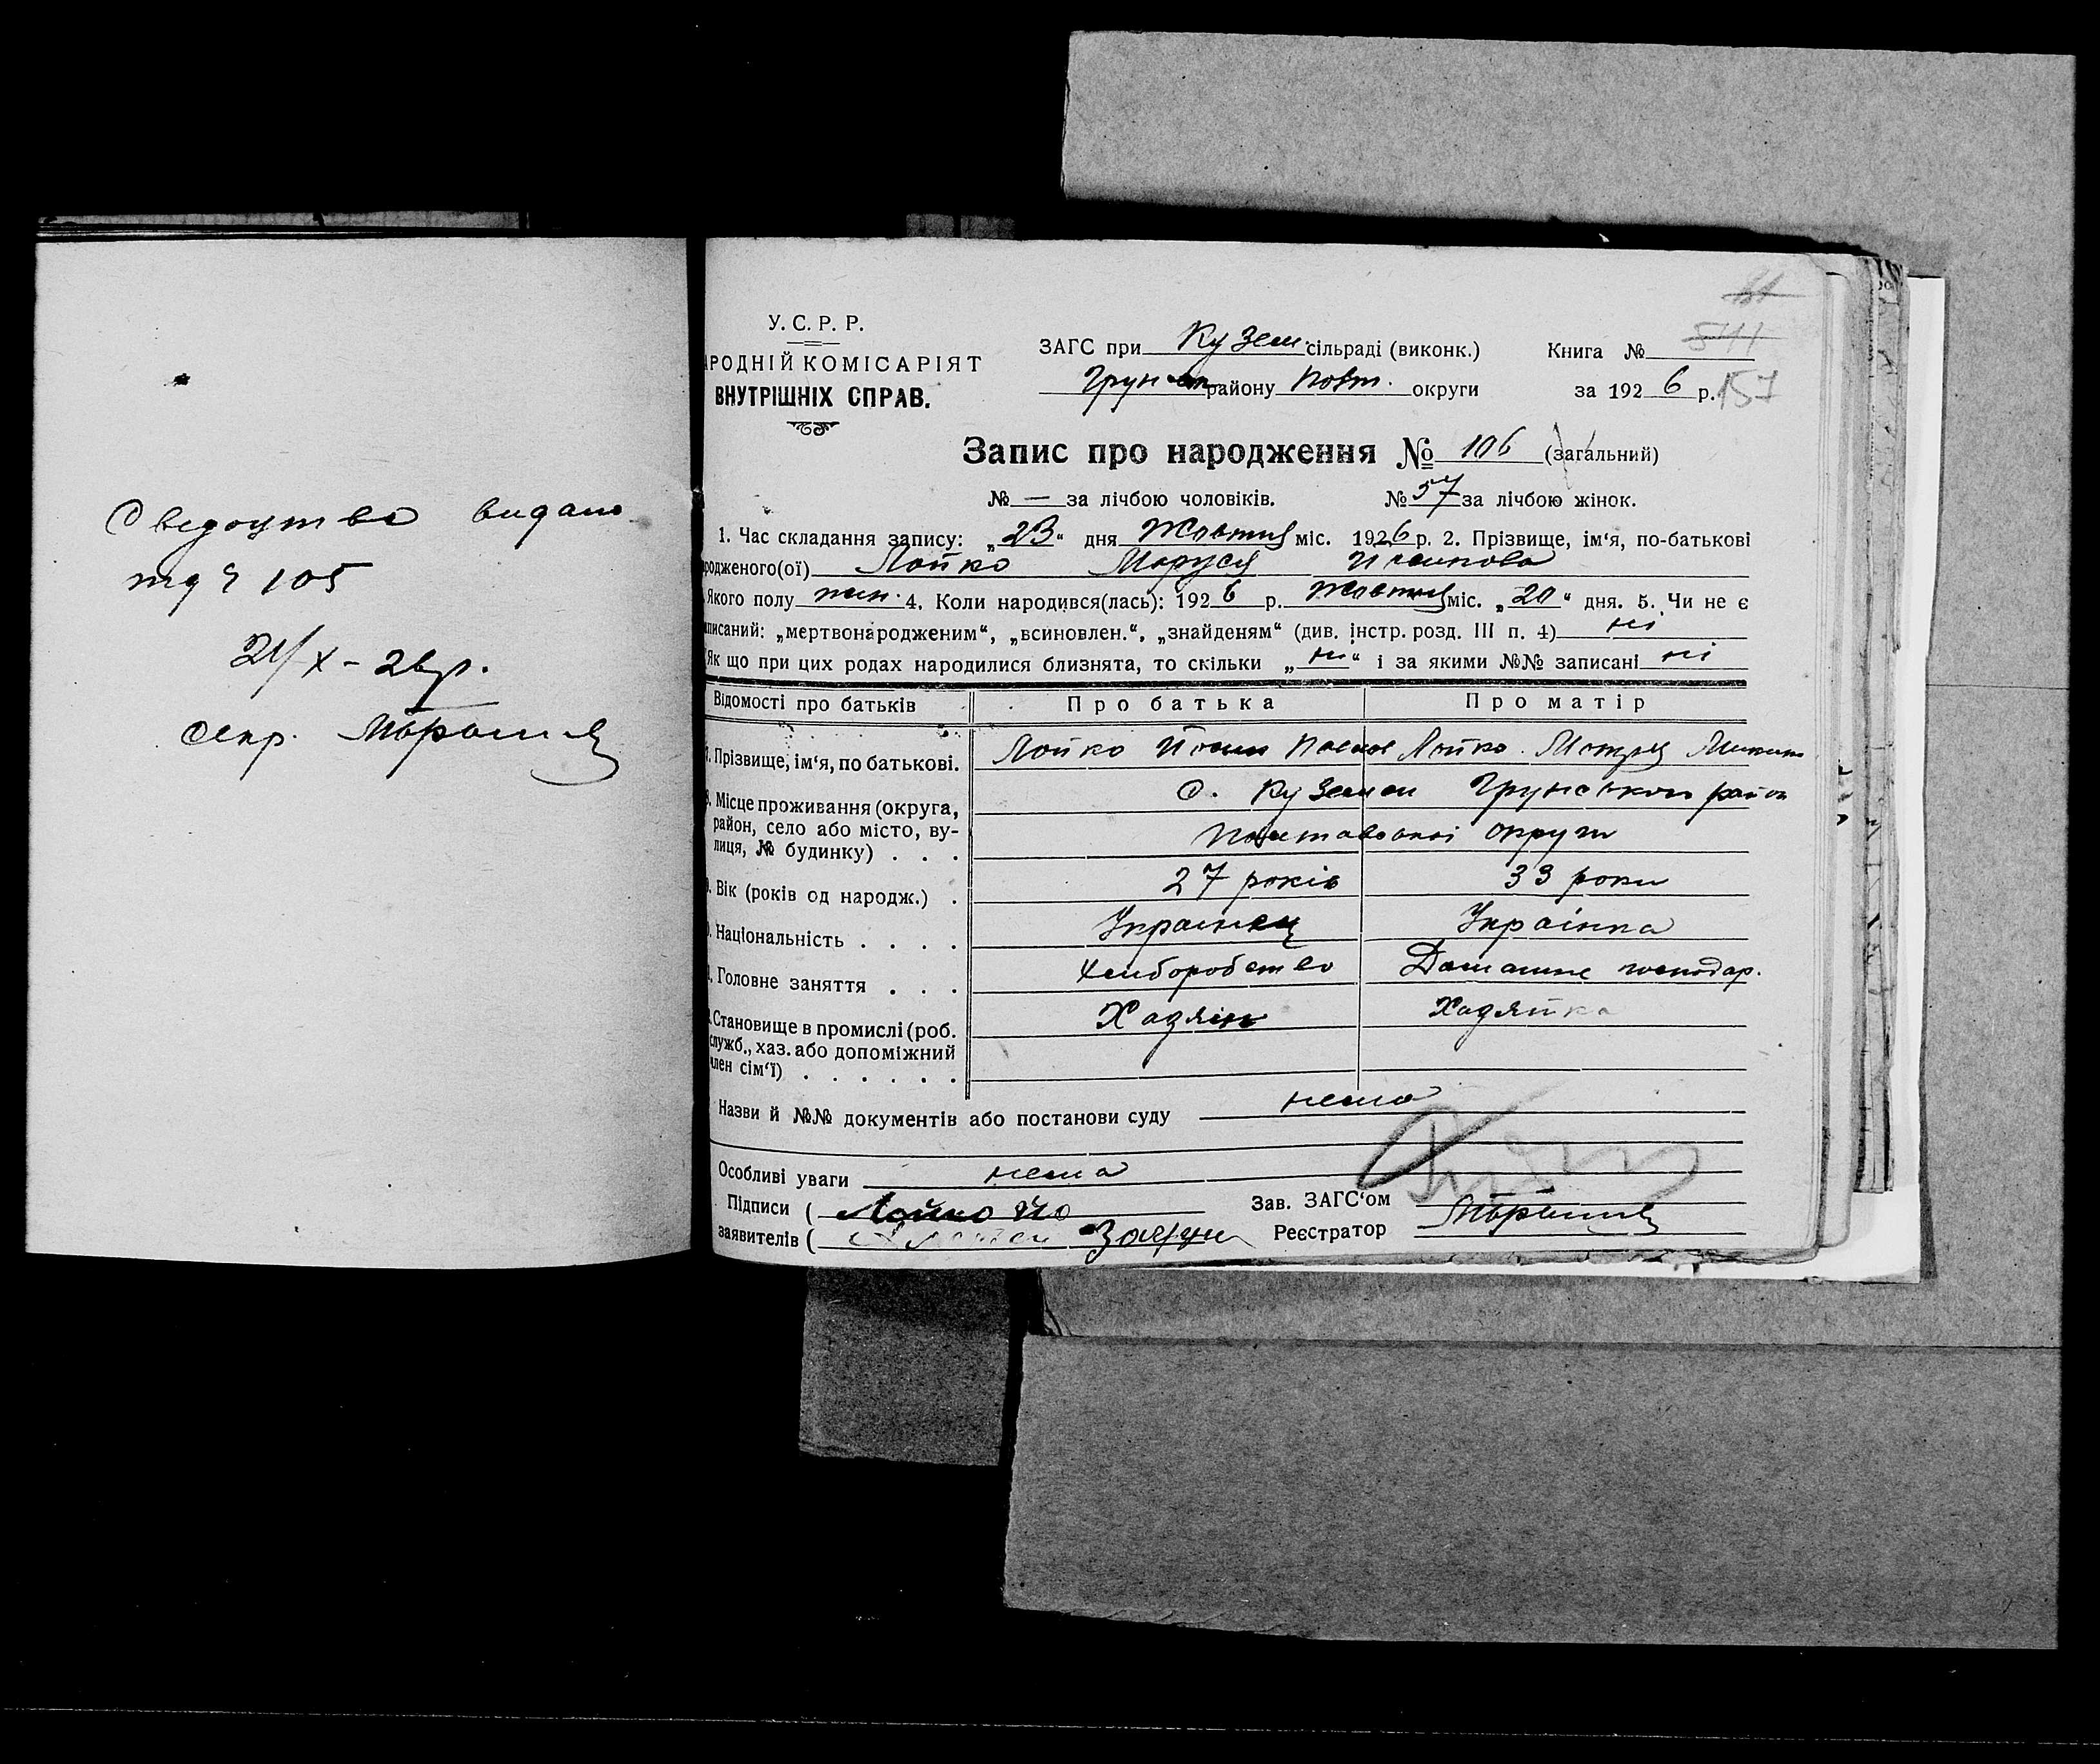 Сведоцтво видано
21/X - 26 р.
Секр.
У. С. Р. Р.
АРОДНІЙ КОМІСАРІЯТ
ВНУТРІШНІХ СПРАВ.
ЗАГС при Кузем. сільраді (виконк.)
Грунсь району Полт. округи
Книга № 511
за 1926 р. 157
Запис про народження № 106 (загальний)
№ — за лічбою чоловіків. № 57 за лічбою жінок.
1. Час складання запису: „23“ дня Жовтня міс. 1926 р. 2. Прізвище, ім‘я, по-батькові
родженого(ої) Лойко Маруся
Якого полу жін. 4. Коли народився(лась): 1926 р. Жовтня міс. „20“ дня. 5. Чи не є
писаний: „мертвонародженим“, „всиновлен.“, „знайденям“ (див. інстр. розд. III п. 4) ні
Як що при цих родах народилися близнята, то скільки „ні“ і за якими №№ записані ні
Відомості про батьків Про батька Про матір
Прізвище, ім‘я, по батькові. Лойко Йосип Павлов Лойко Мотря Микит
Місце проживання (округа, с. Куземен Грунського район
район, село або місто, ву-
лиця, № будинку) . . . Полтавської округи
Вік (років од народж.) . 27 років 33 роки
Національність . . . . Украінец Украінка
Головне заняття . . . Хлиборобство Домашне господар.
Становище в промислі (роб. Хазяін Хазяйка
служб., хаз. або допоміжний
член сім‘ї) . . . . . .
Назви й №№ документів або постанови суду нема
Особливі уваги нема
Підписи ( Лойко Йо Зав. ЗАГС‘ом
заявителів ( Реєстратор